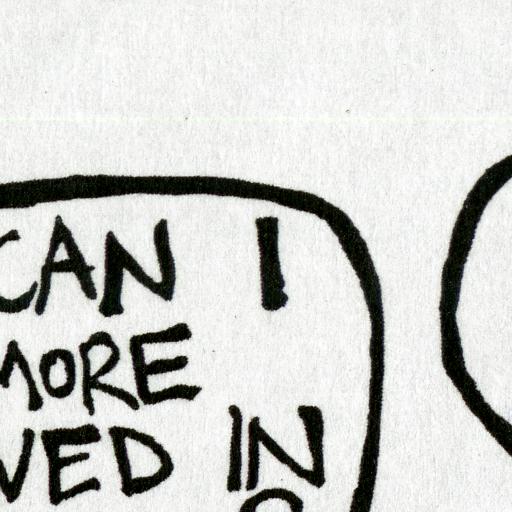 CAN I
MORE
VED IN